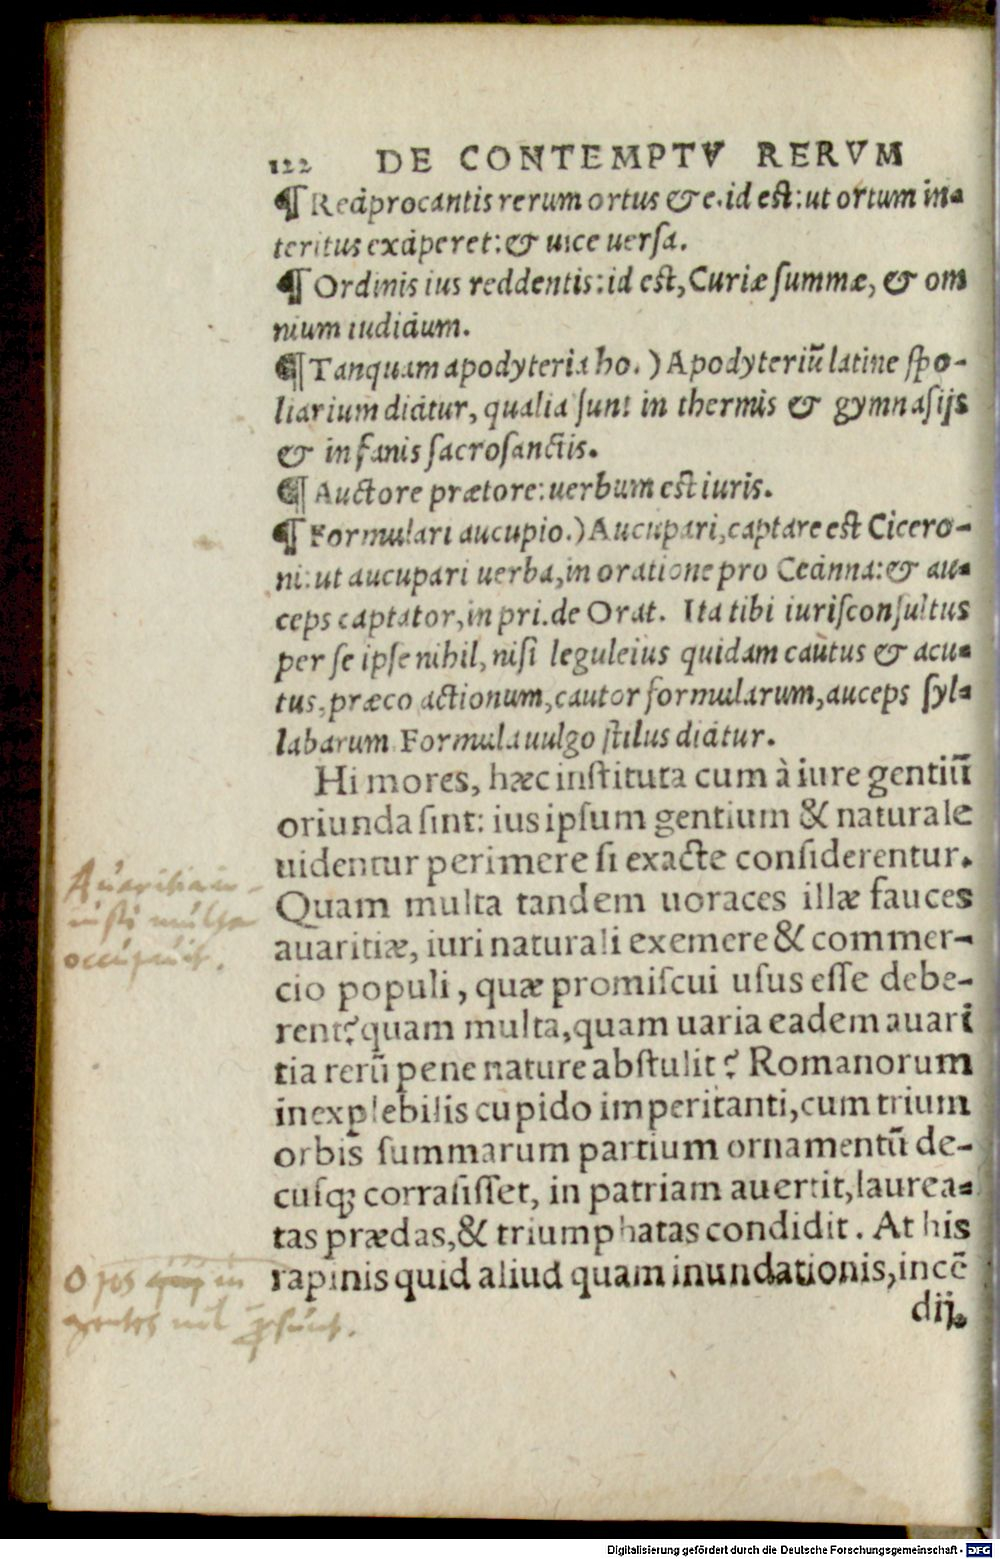 122 DE CONTEMPTV RERVM
¶ Reciprocantis rerum ortus & e. id est: ut ortum in-
teritus exciperet: & uice uersa.
¶ Ordinis ius reddentis: id est, Curiæ summæ, & om
nium iudicium.
¶ Tanquam apodyteria ho. ) Apodyteriũ latine spo-
liarium dicitur, qualia sunt in thermis & gymnasijs
& in fanis sacrosanctis.
¶ Auctore prætore: uerbum est iuris.
¶ Formulari aucupio.) Aucupari, captare est Cicero-
ni: ut aucupari uerba, in oratione pro Cecinna: & au-
ceps captator, in pri. de Orat. Ita tibi iurisconsultus
per se ipse nihil, nisi leguleius quidam cautus & acu-
tus, præco actionum, cautor formularum, auceps syl-
labarum. Formula uulgo stilus dicitur.
Hi mores, hæc instituta cum à iure gentiũ
oriunda sint: ius ipsum gentium & naturale
uidentur perimere si exacte considerentur.
Quam multa tandem uoraces illæ fauces
auaritiæ, iuri naturali exemere & commer-
cio populi, quæ promiscui usus esse debe-
rent? quam multa, quam uaria eadem auari
tia rerũ pene nature abstulit? Romanorum
inexplebilis cupido imperitanti, cum trium
orbis summarum partium ornamentũ de-
cusq; corrasisset, in patriam auertit, laurea-
tas prædas, & triumphatas condidit. At his
rapinis quid aliud quam inundationis, incẽ
dij,
Auaritia in-
iusti multa
occupauit.
Opes in
gentes nil p̃sunt.
Digitalisierung gefördert durch die Deutsche Forschungsgemeinschaft - DFG